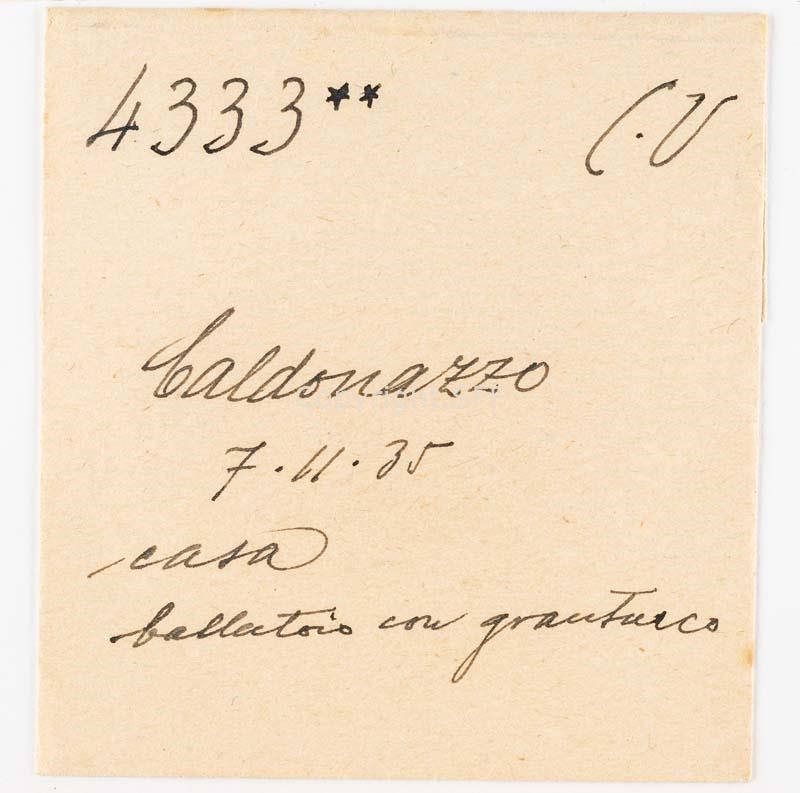 4333** C.V
Caldonazzo
7.11.35
casa
ballatoio con granturco